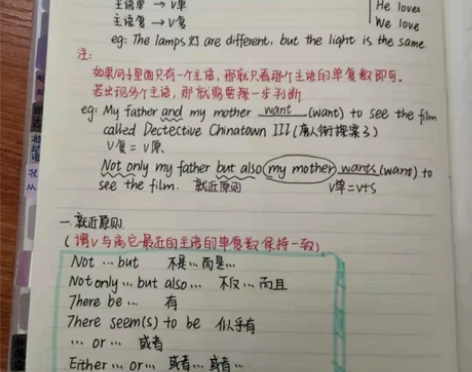 主语单 → V单
He loves
主语复 → V复
We love
eg: The lamps 灯 are different, but the light is the same
注:
如果句子里面只有一个主语,那就只看那个主语的单复数即可。
若出现多个主语,那就需要探一步判断
eg: My father and my mother want (want) to see the film
called Dectective Chinatown III (唐人街探案3)
V复=V原.
Not only my father but also (my mother) wants (want) to
see the film. 就近原则 V单=v+s
一. 就近原则.
(谓V与离它最近的主语的单复数保持一致)
Not … but 不是…而是…
Not only … but also … 不仅…而且
There be … 有
There seem(s) to be 似乎有
… or … 或者
Either … or … 或者…或者…